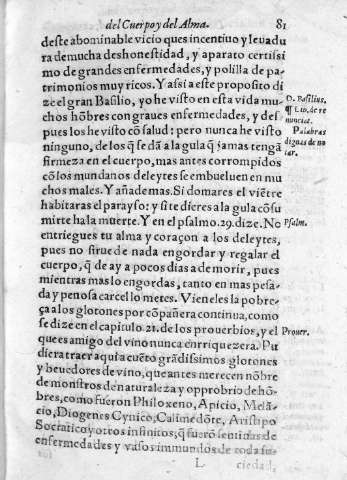 del Cuerpo y del Alma. 81
deste abominable vicio ques incentiuo y leuadu
ra de mucha deshonestidad, y aparato certissi
mo de grandes enfermedades, y polilla de pa-
trimonios muy ricos. Y assi a este proposito di
ze el gran Basilio, yo he visto en esta vida mu-
chos hōbres con graues enfermedades, y des
pues los he visto cō salud: pero nunca he visto
ninguno, de los q̄ se dā a la gula q̄ jamas tengā
firmeza en el cuerpo, mas antes corrompidos
cō los mundanos deleytes se embueluen en mu
chos males. Y añade mas. Si domares el viētre
habitaras el parayso: y si te dieres a la gula cōsu
mirte ha la muerte. Y en el psalmo. 29. dize. No
entriegues tu alma y coraçon a los deleytes,
pues no sirue de nada engordar y regalar el
cuerpo, q̄ de ay a pocos dias a de morir, pues
mientras mas lo engordas, tanto en mas pesa-
da y penosa carcel lo metes. Vieneles la pobre-
ça a los glotones por cōpañera continua, como
se dize en el capitulo. 21. de los prouerbios, y el
que es amigo del vino nunca enrriquezera. Pu
diera traer aqui a cuēto grādissimos glotones
y beuedores de vino, que antes merecen nōbre
de monstros de naturaleza y opprobrio de hō-
bres, como fueron Philoxeno, Apicio, Melā-
cio, Diogenes Cynico, Calimedōte, Aristipo
Socratico y otros infinitos; q̄ fuerō sentinas de
enfermedades y vasos immundos de toda su-
L ciedad,
D. Basilius.
¶ Lib. de re
nuncia.
Palabras
dignas de no
tar.
Psalm.
Prouer.